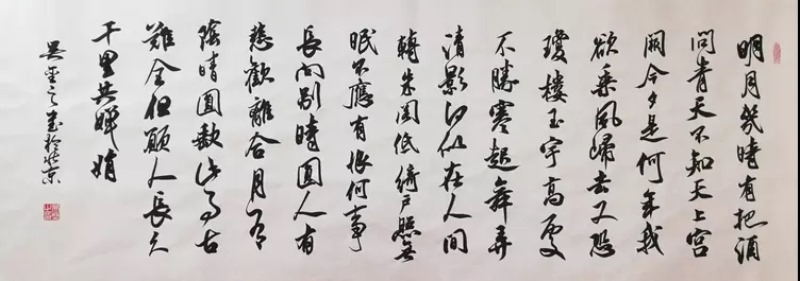 明月幾時有把酒
問青天不知天上宮
闕今夕是何年我
欲乘風歸去又恐
瓊樓玉宇高處
不勝寒起舞弄
清影何似在人間
轉朱閣低綺戶照無
眠不應有恨何事
長向別時圓人有
悲歡離合月有
陰晴圓缺此事古
難全但願人長久
千里共嬋娟
吴之書於北京